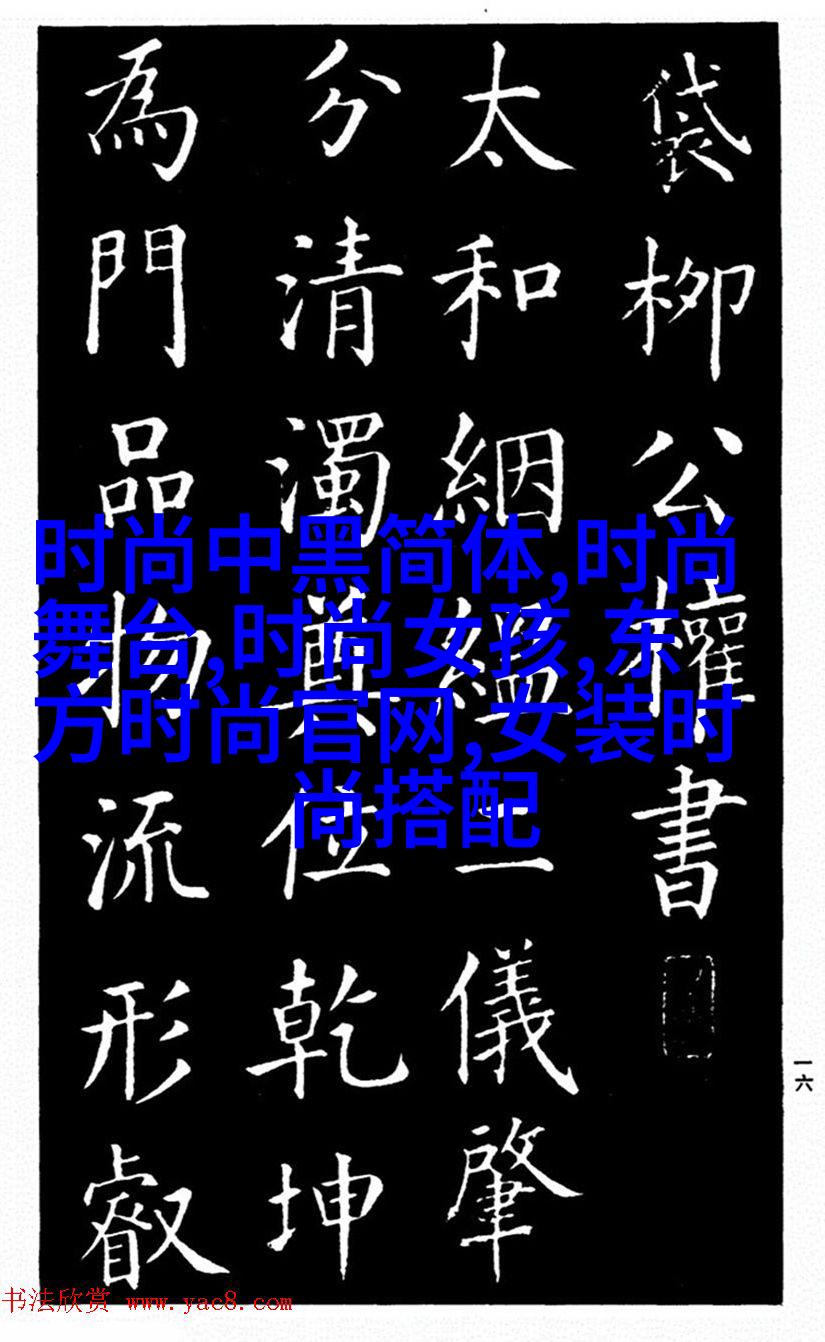 袋柳公權書
太和絪縕二儀肇
分清濁奠位乾坤
為門品物流形叡
时尚中黑简体,时尚
舞台,时尚女孩,东
方时尚官网,女装时
尚搭配
一六
书法欣赏 www.yac8.com